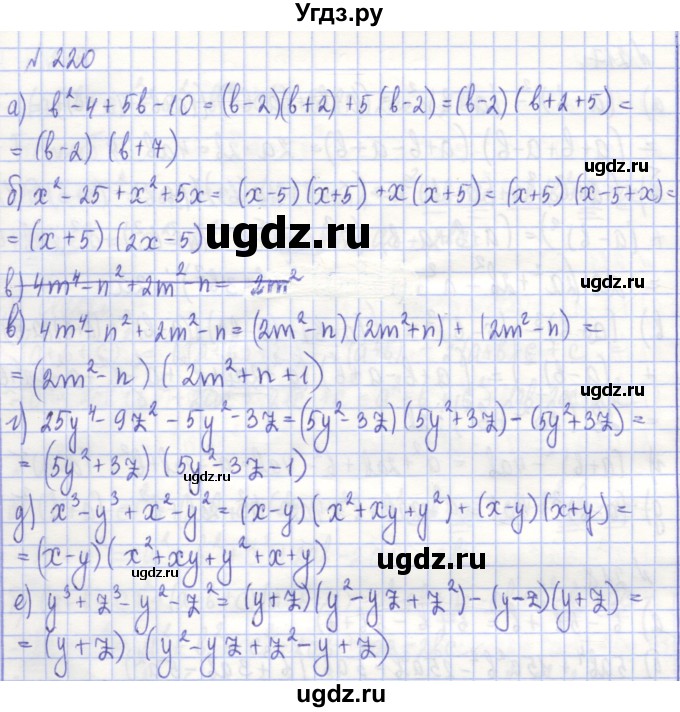 Угдз.ру
№ 220
а) b²-4+5b-10 = (b-2)(b+2)+5(b-2) = (b-2)(b+2+5) =
= (b-2)(b+7)
ugdz.ru
б) x²-25+x²+5x = (x-5)(x+5)+x(x+5) = (x+5)(x-5+x) =
= (x+5)(2x-5)
ugdz.ru
в) 4m⁴-n²+2m²-n = 2m²
ugdz.ru
в) 4m⁴-n²+2m²-n = (2m²-n)(2m²+n)+(2m²-n) =
ugdz.ru
= (2m²-n)(2m²+n+1)
ugdz.ru
г) 25y⁴-9z²-5y²-3z = (5y²-3z)(5y²+3z)-(5y²+3z) =
= (5y²+3z)(5y²-3z-1)
ugdz.ru
д) x³-y³+x²-y² = (x-y)(x²+xy+y²)+(x-y)(x+y) =
= (x-y)(x²+xy+y²+x+y)
ugdz.ru
ugdz.ru
е) y³+z³-y²-z² = (y+z)(y²-yz+z²)-(y-z)(y+z) =
= (y+z)(y²-yz+z²-y+z)
ugdz.ru
ugdz.ru